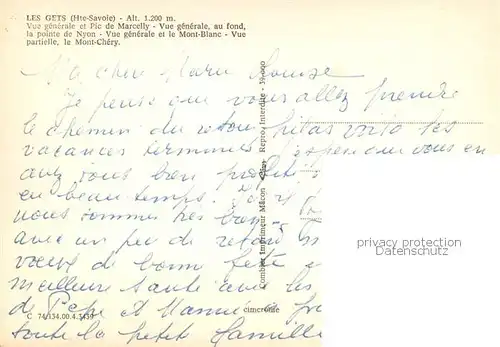 LES GETS (Hte-Savoie) - Alt. 1.200 m.
Vue générale et Pic de Marcelly - Vue générale, au fond,
la pointe de Nyon - Vue générale et le Mont-Blanc - Vue
partielle, le Mont-Chéry.
Ma chère Marie Louise
Je pense que vous allez prendre
le chemin du retour hélas voilà les
vacances terminées j'espère que vous en
avez tous bien profité
en beau temps. Ici
nous sommes très bien
avec un peu de retard
vœux de bonne fête
meilleure santé avec les
de Pépé et Mamie
toute la petite famille
Combier Imprimeur Macon
Repro. Interdite - 39.000
cimcrome
C 74.134.00.4.1439
privacy protection
Datenschutz